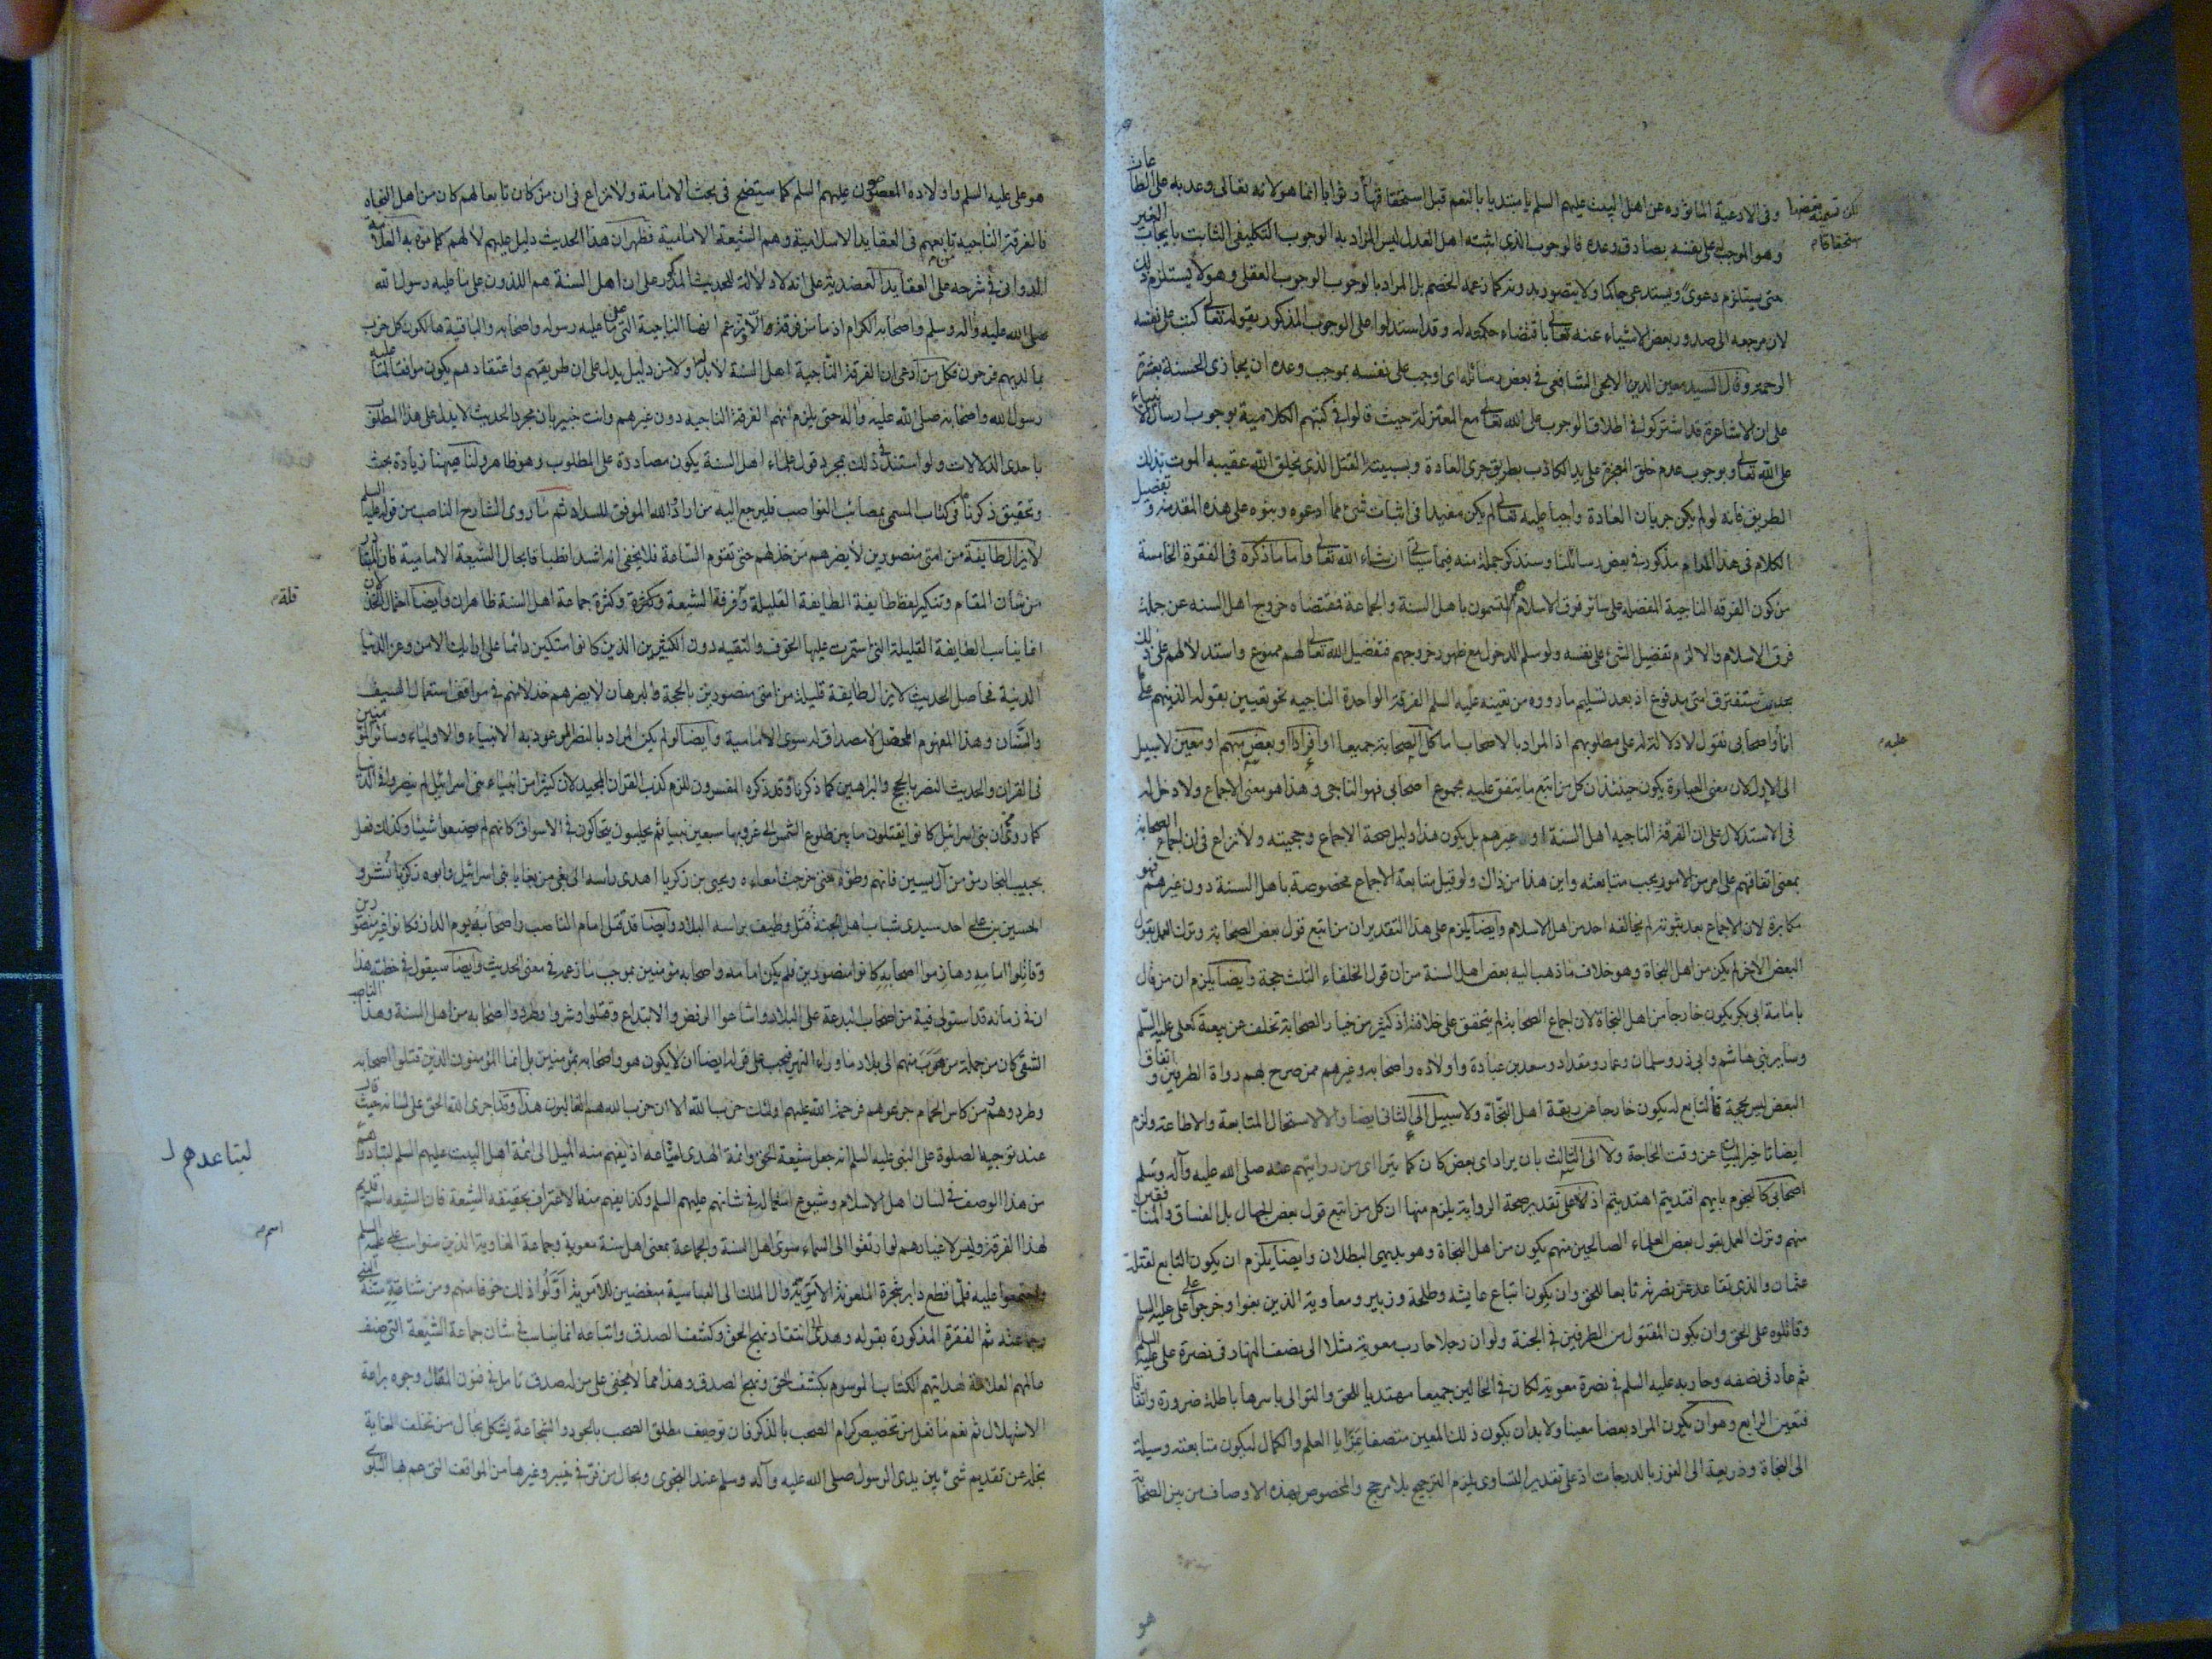 وفى الادعية الماثوره عن اهل البيت عليهم السلم يا مبتديا بالنعم قبل استحقاقها وثوابا انما هو لانه تعالى وعد به على الطاعات
وهو الموجب على نفسه بصادق وعده فالوجوب الذى اثبته اهل العدل ليس المراد به الوجوب التكليفى الثابت بايجاب الغير
حتى يستلزم دعوى ويستدعى حاكما ولا يتصور بدونه كما زعمه الخصم بل المراد بالوجوب الوجوب العقلى وهو لا يستلزم ذلك
لان مرجعه الى صدور بعض الاشياء عنه تعالى باقتضاء حكمته له وقد استدلوا على الوجوب المذكور بقوله تعالى كتب على نفسه
الرحمة وقال السيد معين الدين الايجى الشافعى فى بعض رسائله اى اوجب على نفسه بموجب وعده ان يجازى الحسنة بعشرة
على ان الاشاعرة قد اشتركوا فى اطلاق الوجوب على الله تعالى مع المعتزلة حيث قالوا فى كتبهم الكلامية بوجوب ارسال الانبياء
على الله تعالى وبوجوب عدم خلق المعجزة على يد الكاذب بطريق جرى العادة وبسببية القتل الذى يخلق الله عقيبه الموت بذلك
الطريق فانه لو لم يكن جريان العادة واجبا عليه تعالى لم يكن مفيدا فى اثبات شئ مما ادعوه وبنوه على هذه المقدمة وتفصيل
الكلام فى هذا المرام مذكور فى بعض رسائلنا وسنذكر جملة منه فيما سياتى ان شاء الله تعالى واما ما ذكره فى الفقرة الخامسة
من كون الفرقه الناجية المفضله على سائر فرق الاسلام هم المتسمون باهل السنة والجماعة فمقتضاه خروج اهل السنه عن جملة
فرق الاسلام والا لزم تفضيل الشئ على نفسه ولو سلم الدخول مع ظهور خروجهم فتفضيل الله تعالى لهم ممنوع واستدلالهم على ذلك
بحديث ستفترق امتى مدفوع اذ بعد تسليم ما رووه من تعينه عليه السلم الفرقة الواحدة الناجيه نحو تعيين بقوله الذينهم على
انا واصحابى نقول لا دلالة له على مطلوبهم اذ المراد بالاصحاب اما كل الصحابة جميعا او افرادا او بعض مبهم او معين لا سبيل
الى الاول لان معنى العبارة يكون حينئذ ان كل من اتبع ما يتفق عليه مجموع اصحابى فهو الناجى وهذا هو معنى الاجماع ولا دخل له
فى الاستدلال على ان الفرقة الناجيه اهل السنة او غيرهم بل يكون هذا دليل صحة الاجماع وحجيته ولا نزاع فى ان اجماع الصحابة
بمعنى اتفاقهم على امر من الامور يجب متابعته واين هذا من ذاك ولو قيل متابعة الاجماع مخصوصة باهل السنة دون غيرهم فهو
مكابرة لان الاجماع بعد ثبوته لم يخالفه احد من اهل الاسلام وايضا يلزم على هذا التقدير ان من اتبع قول بعض الصحابة وترك العمل بقول
البعض الاخر لم يكن من اهل النجاة وهو خلاف ما ذهب اليه بعض اهل السنة من ان قول الخلفاء الثلث حجة وايضا يلزم ان من قال
بامامة ابى بكر يكون خارجا من اهل النجاة لان اجماع الصحابة لم يتحقق على خلافته اذ كثير من خيار الصحابة تخلف عن بيعته كعلى عليه السلم
وساير بنى هاشم وابى ذر وسلمان وعمار ومقداد وسعد بن عبادة واولاده واصحابه وغيرهم ممن صرح بهم رواة الطرفين واتفاق
البعض ليس بحجة فالتابع له يكون خارجا عن ربقة اهل النجاة ولا سبيل الى الثانى ايضا والا لاستحال المتابعة والاطاعة ولزم
ايضا تاخير البيان عن وقت الحاجة ولا الى الثالث بان يراد اى بعض كان كما يتراى من روايتهم عنه صلى الله عليه وآله وسلم
اصحابى كالنجوم بايهم اقتديتم اهتديتم اذ لا على تقدير صحة الرواية يلزم منها ان كل من اتبع قول بعض الجهال بل الفساق والمنافقين
منهم وترك العمل بقول بعض العلماء الصالحين منهم يكون من اهل النجاة وهو بديهى البطلان وايضا يلزم ان يكون التابع لقتلة
عثمان والذى تقاعد عن نصرته تابعا للحق وان يكون اتباع عايشه وطلحة وزبير ومعاوية الذين بغوا وخرجوا على على عليه السلم
وقاتلوه على الحق وان يكون المقتول من الطرفين فى الجنة ولو ان رجلا حارب معوية مثلا الى نصف النهار فى نصرة على عليه السلم
ثم عاد فى نصفه وحاربه عليه السلم فى نصرة معوية لكان فى الحالين جميعا مهتديا للحق والتوالى باسرها باطلة ضرورة واتفاقا
فتعين الرابع وهو ان يكون المراد بعضا معينا ولا بد ان يكون ذلك المعين متصفا بمزايا العلم والكمال ليكون متابعته وسيلة
الى النجاة وذريعة الى الفوز بالدرجات اذ على تقدير التساوى يلزم الترجيح بلا مرجح والمخصوص بهذه الاوصاف من بين الصحابة
هو
هو على عليه السلم واولاده المعصومون عليهم السلم كما سيتضح فى بحث الامامة ولا نزاع فى ان من كان تابعا لهم كان من اهل النجاه
فالفرقة الناجية تابعهم فى العقايد الاسلامية وهم الشيعة الامامية فظهر ان هذا الحديث دليل عليهم لا لهم كما موه به العلامة
الدوانى فى شرحه على العقايد العضدية على انه لا دلالة للحديث المذكور على ان اهل السنة هم الذين على ما عليه رسول الله
صلى الله عليه وآله وسلم واصحابه الكرام اذ ما من فرقة الا وتزعم انها الناجية التى على ما عليه رسوله واصحابه والباقية هالكون كل حزب
بما لديهم فرحون فكل من ادعى ان الفرقة الناجية اهل السنة لابد له اولا من دليل يدل على ان طريقهم واعتقادهم يكون موافقا لما عليه
رسول الله واصحابه صلى الله عليه واله حتى يلزم انهم الفرقة الناجيه دون غيرهم وانت خبير بان مجرد الحديث لا يدل على هذا المطلوب
باحدى الدلالات ولو استند فى ذلك بمجرد قول علماء اهل السنة يكون مصادرة على المطلوب وهو ظاهر ولنا هيهنا زيادة بحث
وتحقيق ذكرناه فى كتاب المسمى بمصائب النواصب فليرجع اليه من اراد الله الموفق للسداد ثم ما روى الشارح الناصب من قوله عليه السلم
لا يزال طايفة من امتى منصورين لا يضرهم من خذلهم حتى تقوم الساعة فلا يخفى انه اشد انطباقا بحال الشيعة الامامية فان المتبادر
من شان المقام وتنكير لفظ طايفة الطايفة القليلة وفرقة الشيعة وكثرة وكثرة جماعة اهل السنة ظاهران وايضا احتمال الخذلان
انما يناسب لطايفة القليلة التى استمرت عليها الخوف والتقيه دون الكثيرين الذين كانوا متكئين دائما على ارايك الامن وعز الدنيا
الدنية فحاصل الحديث لا يزال طايفة قليلة من امتى منصورين بالحجة والبرهان لا يضرهم خذلانهم فى مواقف استعمال السيف
والسنان وهذا المفهوم المحصل لا مصداق له سوى الامامية وايضا لو لم يكن المراد بالنصر الموعود به الانبياء والاولياء وسائر المؤمنين
فى القران والحديث النصر بالحجج والبراهين كما ذكرنا وقد ذكره المفسرون للزم كذب القران المجيد لان كثيرا من انبياء بنى اسرائيل لم ينصروا فى الدنيا
كما روى ان بنى اسرائيل كانوا يقتلون ما بين طلوع الشمس الى غروبها سبعين نبيا ثم يجلسون يتحاكون فى الاسواق كانهم لم يصنعوا شيئا وكذلك فعل
بحبيب النجار مؤمن آل يسين فانهم وطؤه حتى خرجت امعاءه ويحيى بن زكريا اهدى راسه الى بغى من بغايا بنى اسرائيل وابوه زكريا نشر و
الحسين بن على احد سيدى شباب اهل الجنة قتل وطيف براسه البلاد وايضا قد قتل امام الناصب واصحابه يوم الدار فكانوا غير منصورين
وقاتلوا امامه وهازموا اصحابه كانوا منصورين فلم يكن امامه واصحابه مؤمنين بموجب ما زعمه فى معنى الحديث وايضا سيقول فى خطبته هذا
ان فى زمانه قد استولى فيه من اصحاب البدعة على البلاد واشاعوا الرفض والابتداع وقتلوا وشردوا وطردوا اصحابه من اهل السنة وهذا الناصب
الشقى كان من جملة من هرب منهم الى بلاد ما وراء النهر فيجب على قوله ايضا ان لا يكون هو واصحابه بمؤمنين بل انما المؤمنون الذين قتلوا اصحابه
وطردوهم ومن كاس الحمام جرعوهم فرحمة الله عليهم اولئك حزب الله الا ان حزب الله هم الغالبون هذا وقد اجرى الله الحق على لسانه حيث قال
عند توجيه الصلوة على النبى عليه السلم انه جعل شيعة الحق وائمة الهدى اتباعه اذ يفهم منه الميل الى ائمة اهل البيت عليهم السلم لتبادرهم
من هذا الوصف فى لسان اهل الاسلام وشيوع استعماله فى شانهم عليهم السلم وكذا يفهم منه الاعتراف بحقيقه الشيعة فان الشيعه اسم قديم
لهذا الفرقة وليس لاغيارهم لو ارتقوا الى السماء سوى اهل السنة والجماعة بمعنى اهل سنة معوية وجماعة الغاوية الذين سنوا سب على عليه السلم
واجتمعوا عليه فلما قطع دابر شجرة الملعونة الاموية وال الملك الى العباسية مبغضين للاموية اولوا ذلك خوفا منهم ومن شناعة سنة النبى
وجماعته ثم الفقرة المذكورة بقوله وهدى الى انتقاد نهج الحق وكشف الصدق واتباعه انما يناسب فى شان جماعة الشيعة التى صنف
عالمهم العلامة لهدايتهم الكتاب الموسوم بكشف الحق ونهج الصدق وهذا مما لا يخفى على من له صدق تامل فى فنون المقال وجوه براعة
الاستهلال ثم نعم ما فعل من تخصيص كرام الصحب بالذكر فان توصيف مطلق الصحب بالجود والشجاعة يشكل بحال من تخلف لغاية
بخله عن تقديم شئ بين يدى الرسول صلى الله عليه وآله وسلم عند النجوى وبحال من فر فى خيبر وغيرها من المواقف التى هم بها البلوى
قلة